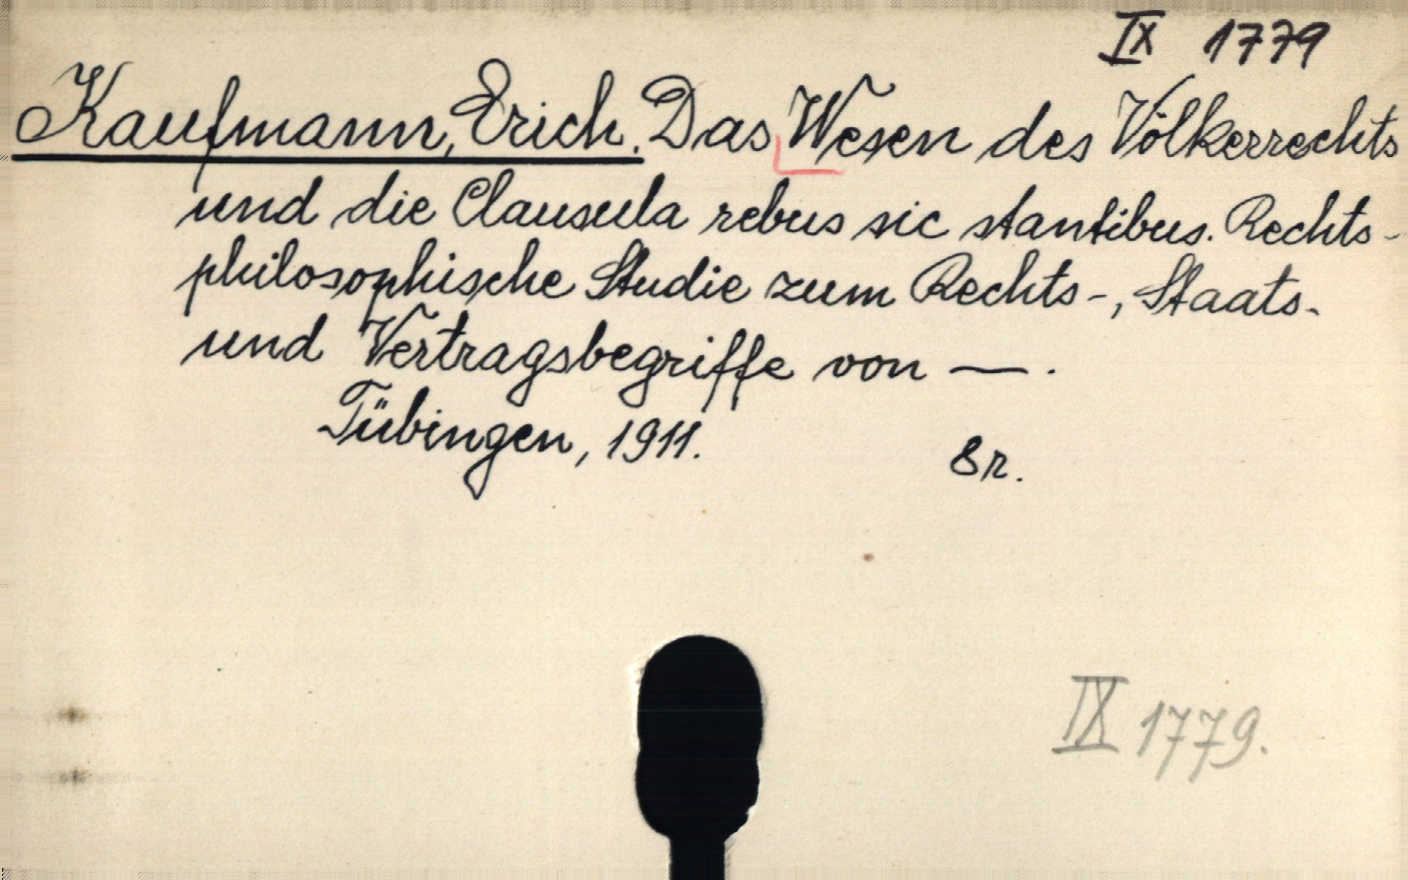 IX 1779
Kaufmann, Erich. Das Wesen des Völkerrechts
und die Clausula rebus sic stantibus. Rechts-
philosophische Studie zum Rechts-, Staats-
und Vertragsbegriffe von —.
Tübingen, 1911.
8r.
IX 1779.